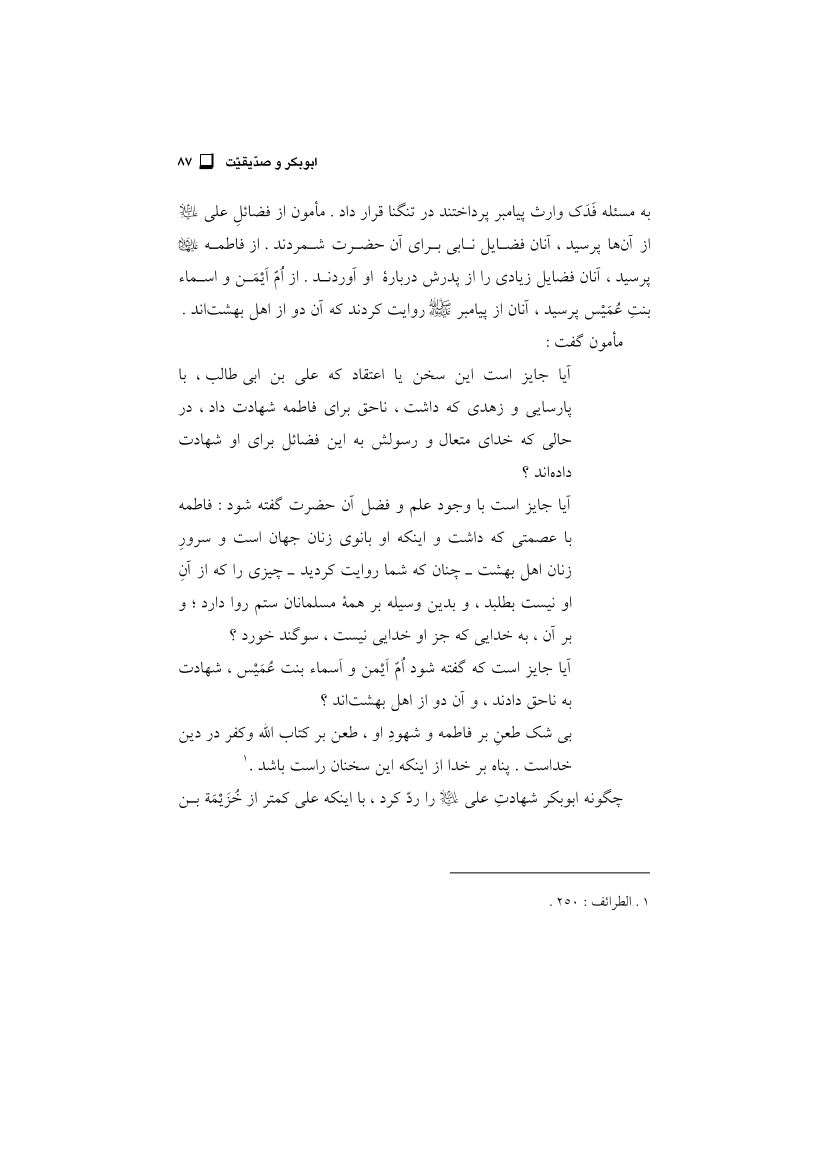 ابوبکر و صدّیقیّت ❑ ۸۷
به مسئله فَدَک وارث پیامبر پرداختند در تنگنا قرار داد . مأمون از فضائلِ علی علیه‌السلام
از آن‌ها پرسید ، آنان فضـایل نـابی بـرای آن حضـرت شـمردند . از فاطمـه علیهاالسلام
پرسید ، آنان فضایل زیادی را از پدرش دربارهٔ او آوردنـد . از اُمّ اَیْمَـن و اسـماء
بنتِ عُمَیْس پرسید ، آنان از پیامبر ﷺ روایت کردند که آن دو از اهل بهشت‌اند .
مأمون گفت :
آیا جایز است این سخن یا اعتقاد که علی بن ابی طالب ، با
پارسایی و زهدی که داشت ، ناحق برای فاطمه شهادت داد ، در
حالی که خدای متعال و رسولش به این فضائل برای او شهادت
داده‌اند ؟
آیا جایز است با وجود علم و فضل آن حضرت گفته شود : فاطمه
با عصمتی که داشت و اینکه او بانوی زنان جهان است و سرورِ
زنان اهل بهشت ـ چنان که شما روایت کردید ـ چیزی را که از آنِ
او نیست بطلبد ، و بدین وسیله بر همهٔ مسلمانان ستم روا دارد ؛ و
بر آن ، به خدایی که جز او خدایی نیست ، سوگند خورد ؟
آیا جایز است که گفته شود اُمّ اَیْمن و اَسماء بنت عُمَیْس ، شهادت
به ناحق دادند ، و آن دو از اهل بهشت‌اند ؟
بی شک طعنِ بر فاطمه و شهودِ او ، طعن بر کتاب الله وکفر در دین
خداست . پناه بر خدا از اینکه این سخنان راست باشد .۱
چگونه ابوبکر شهادتِ علی علیه‌السلام را ردّ کرد ، با اینکه علی کمتر از خُزَیْمَة بـن
۱ . الطرائف : ۲۵۰ .